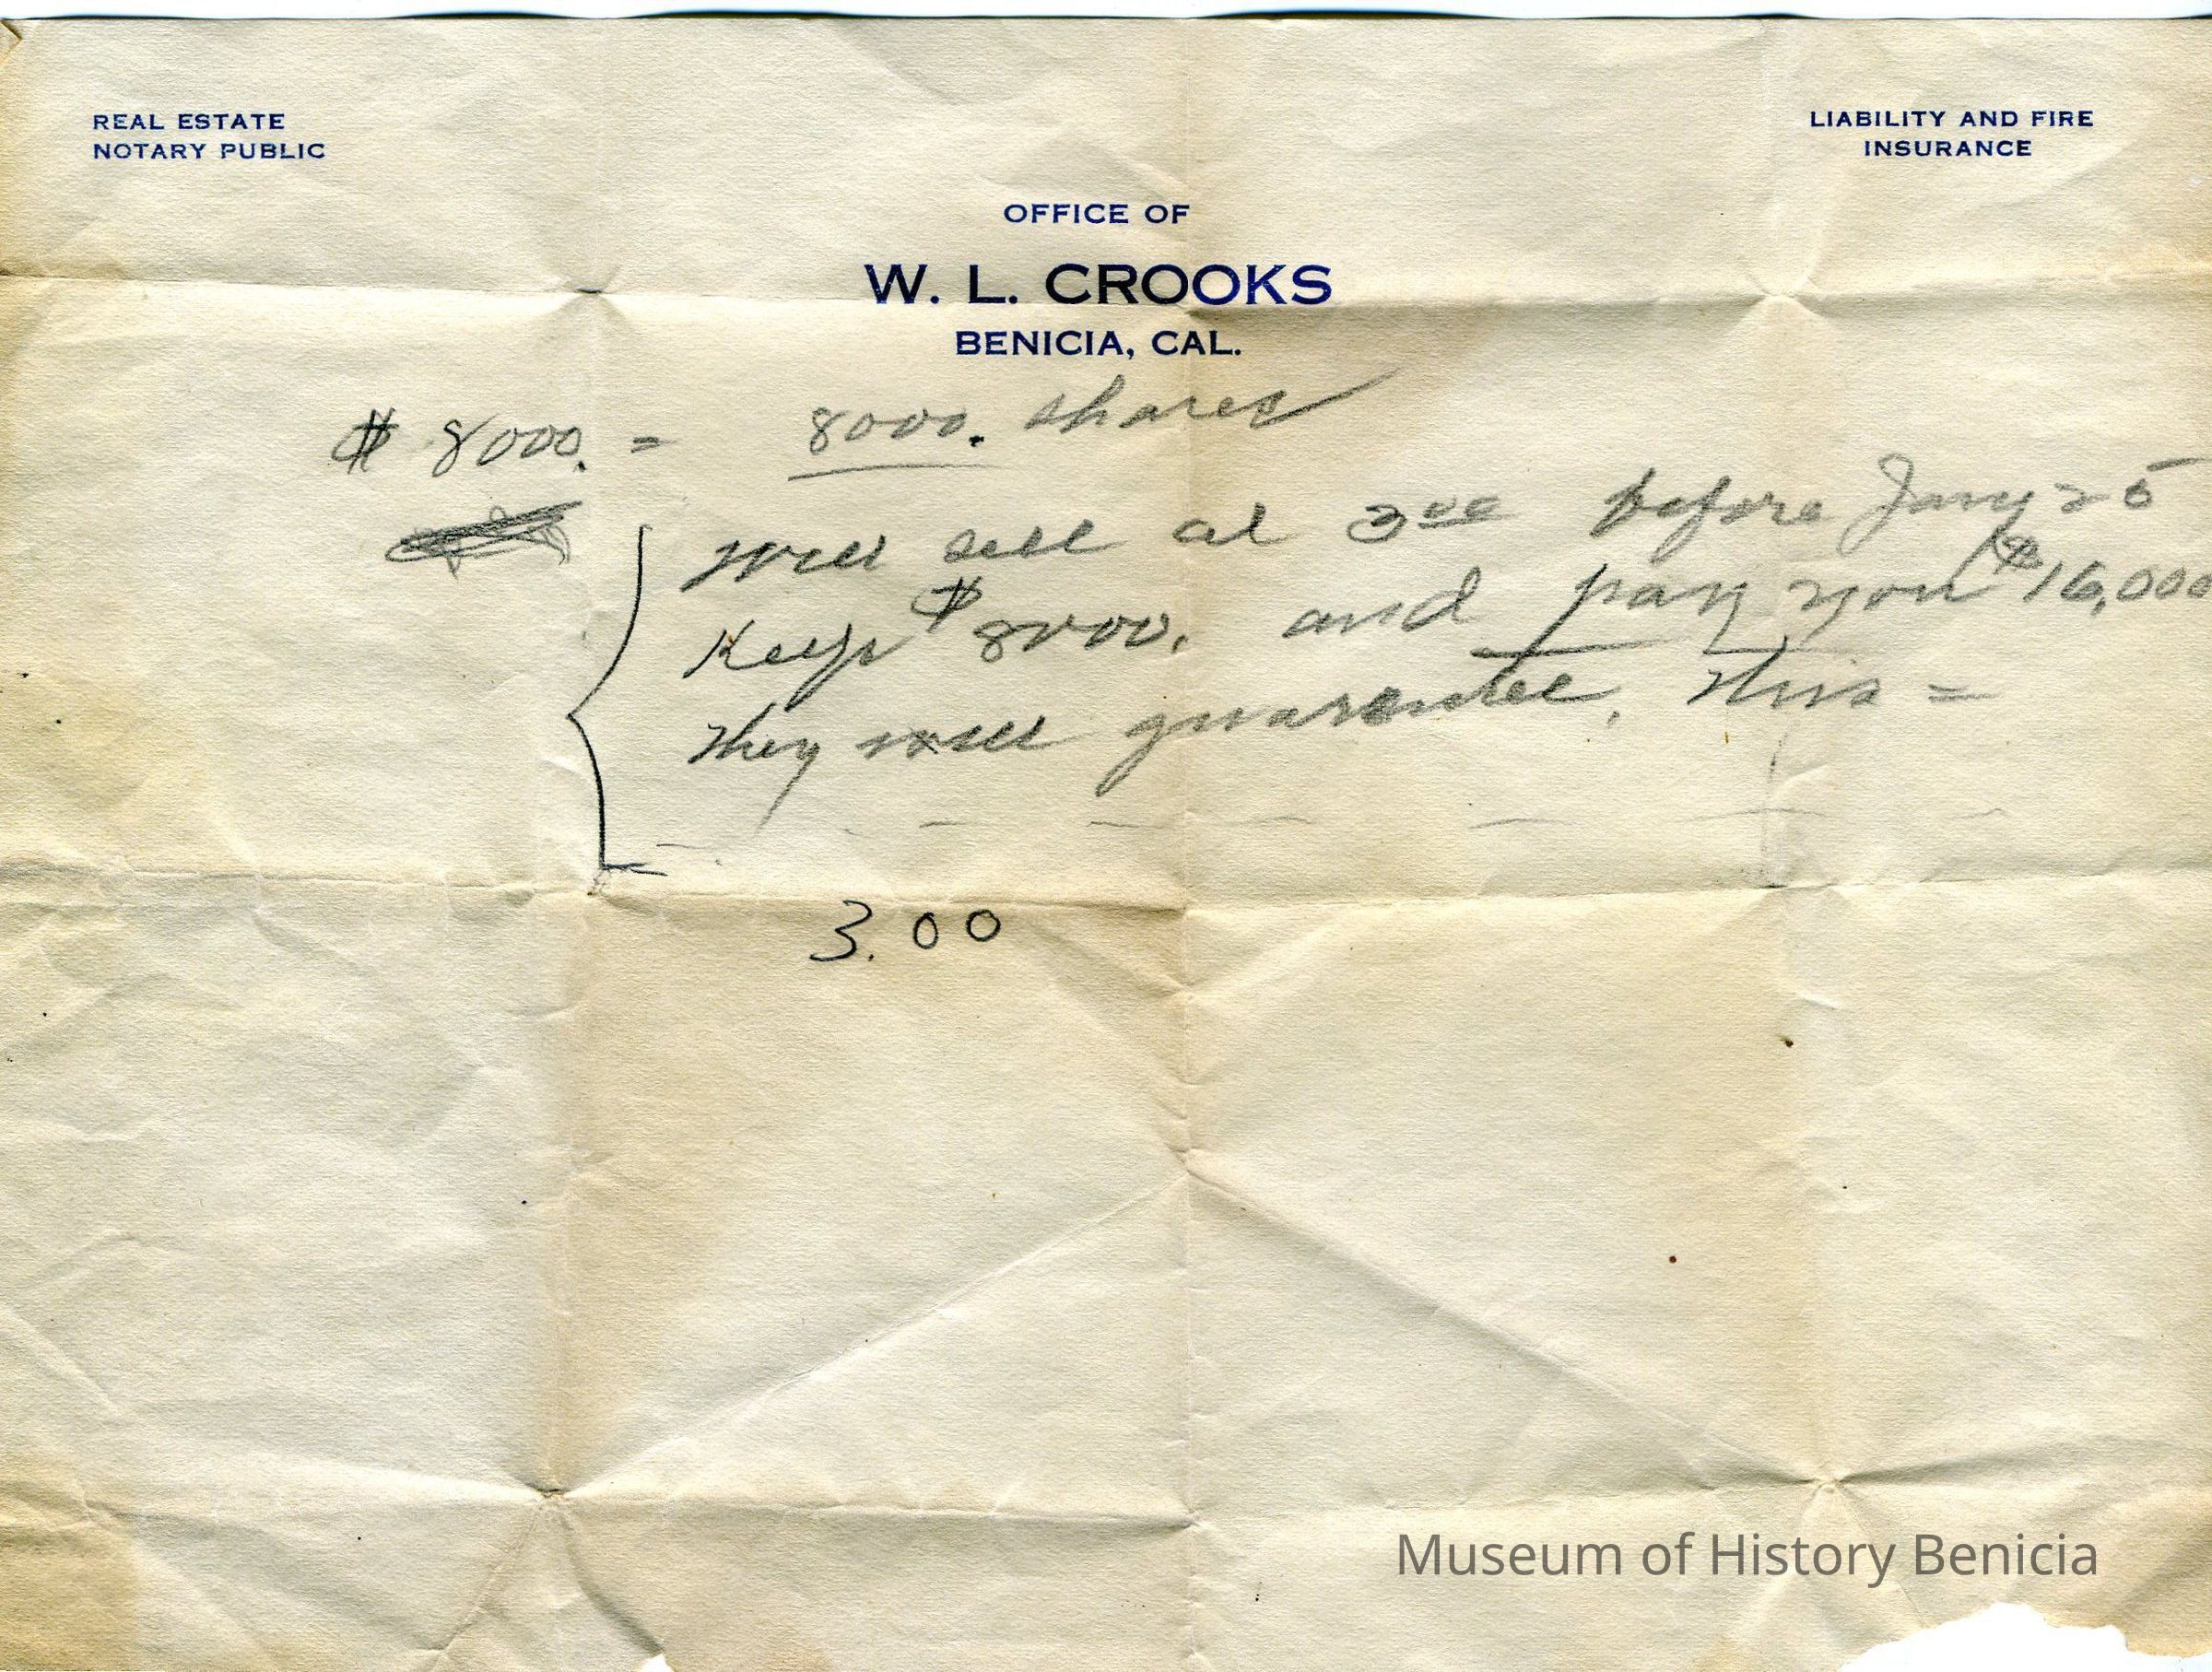 REAL ESTATE
NOTARY PUBLIC
LIABILITY AND FIRE
INSURANCE
OFFICE OF
W. L. CROOKS
BENICIA, CAL.
$ 8000. = 8000. shares
Will sell at 3 00 before Jany 25
Keep $ 8000. and pay you $16,000
They will guarentee, this =
3.00
Museum of History Benicia